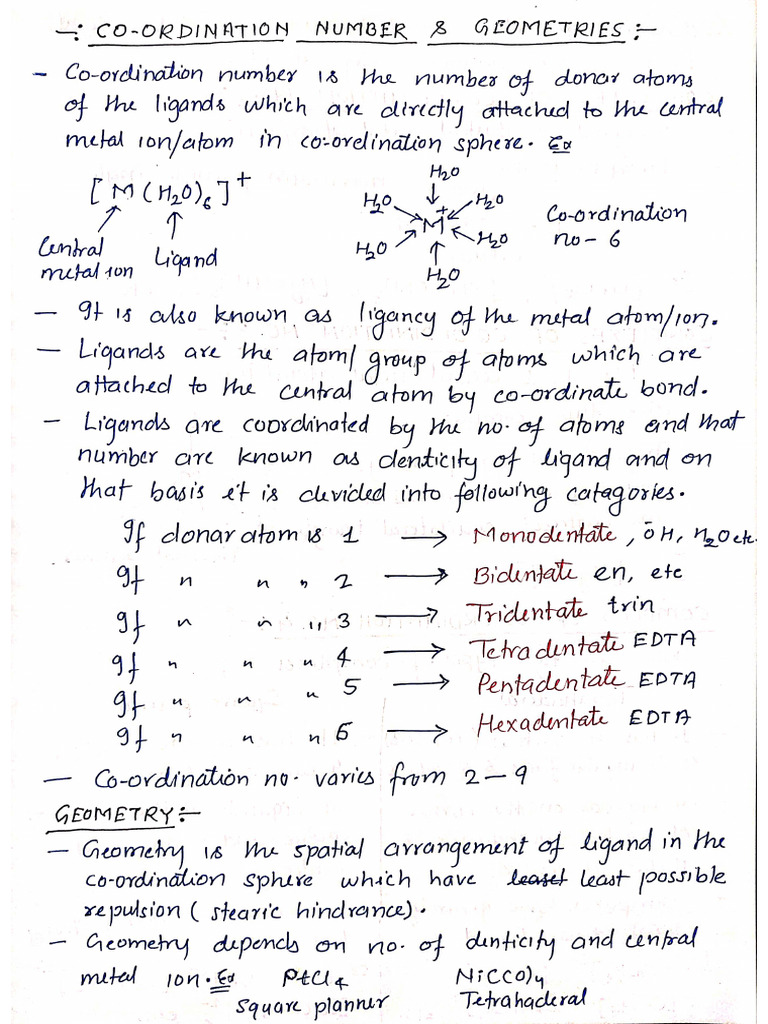 -: CO-ORDINATION NUMBER & GEOMETRIES :-
- Co-ordination number is the number of donar atoms
of the ligands which are directly attached to the central
metal ion/atom in co-ordination sphere. Ex
[M(H2O)6]+
Central
metal ion
Ligand
H2O
H2O H2O
M+
H2O H2O
H2O
Co-ordination
no- 6
- It is also known as ligancy of the metal atom/ion.
- Ligands are the atom/group of atoms which are
attached to the central atom by co-ordinate bond.
- Ligands are coordinated by the no. of atoms and that
number are known as denticity of ligand and on
that basis it is devided into following catagories.
If donar atom is 1 → Monodentate, ōH, H2O etc.
If " " " 2 → Bidentate en, etc
If " " " 3 → Tridentate trin
If " " " 4 → Tetradentate EDTA
If " " " 5 → Pentadentate EDTA
If " " " 6 → Hexadentate EDTA
- Co-ordination no. varies from 2-9
GEOMETRY:-
- Geometry is the spatial arrangement of ligand in the
co-ordination sphere which have least possible
repulsion (stearic hindrance).
- Geometry depends on no. of denticity and central
metal ion. Ex PtCl4 Ni(CO)4
square planner Tetrahaderal